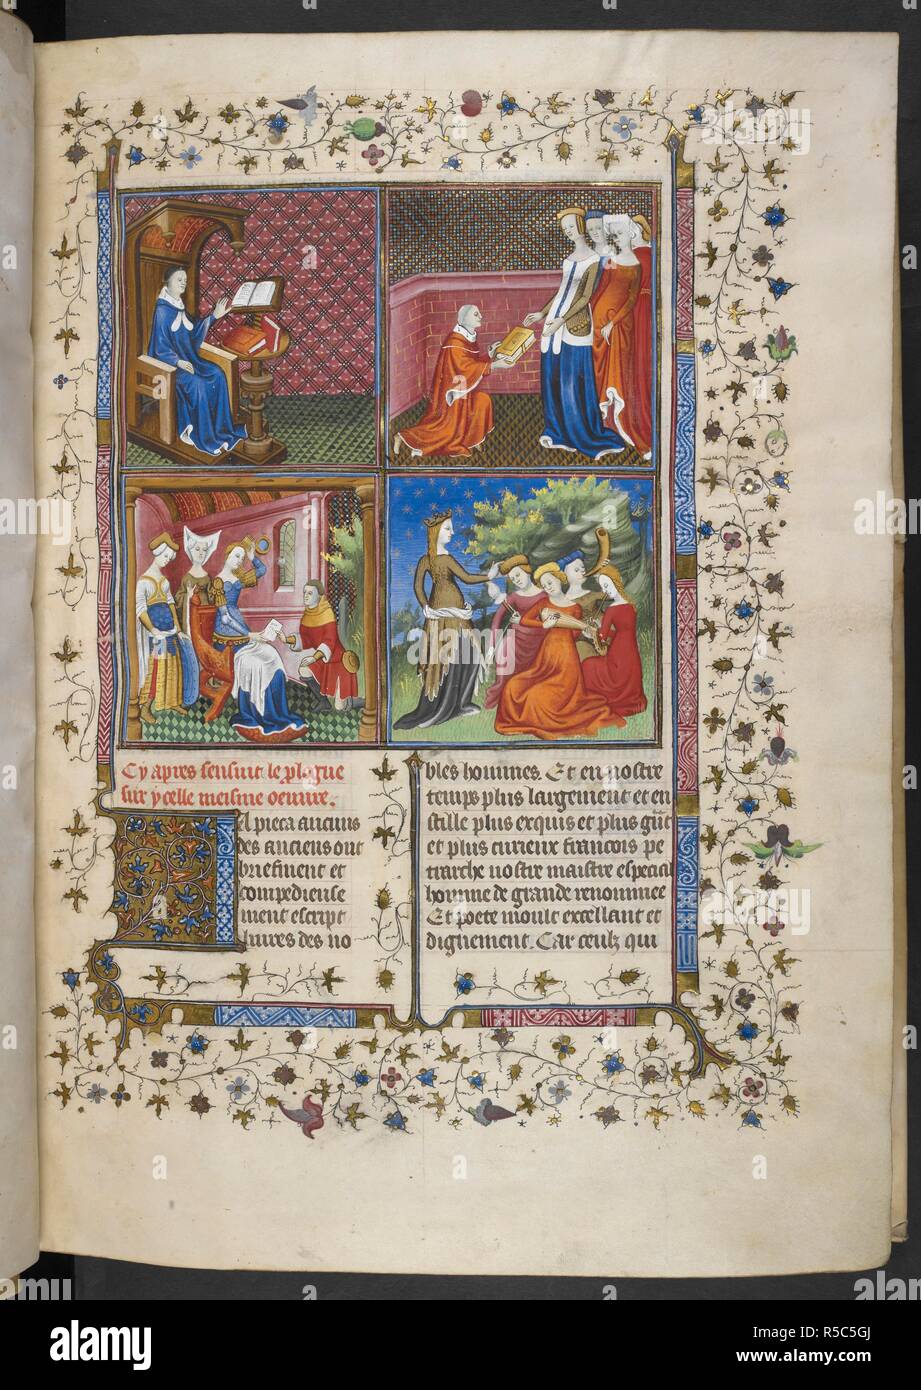 Cy apres sensuit le plogue
sur ycelle meisme oeuvre.
l pieca aucuns
des anciens ont
briefment et
compediense
ment escript
livres des no
bles hommes. Et en nostre
temps plus largement et en
stille plus exquis et plus
et plus curieux francois pe
trarche nostre maistre especial
homme de grande renommee
Et poete moult excellant et
dignement. Car ceulz qui
alamy
Image ID: R5C5GJ
www.alamy.com